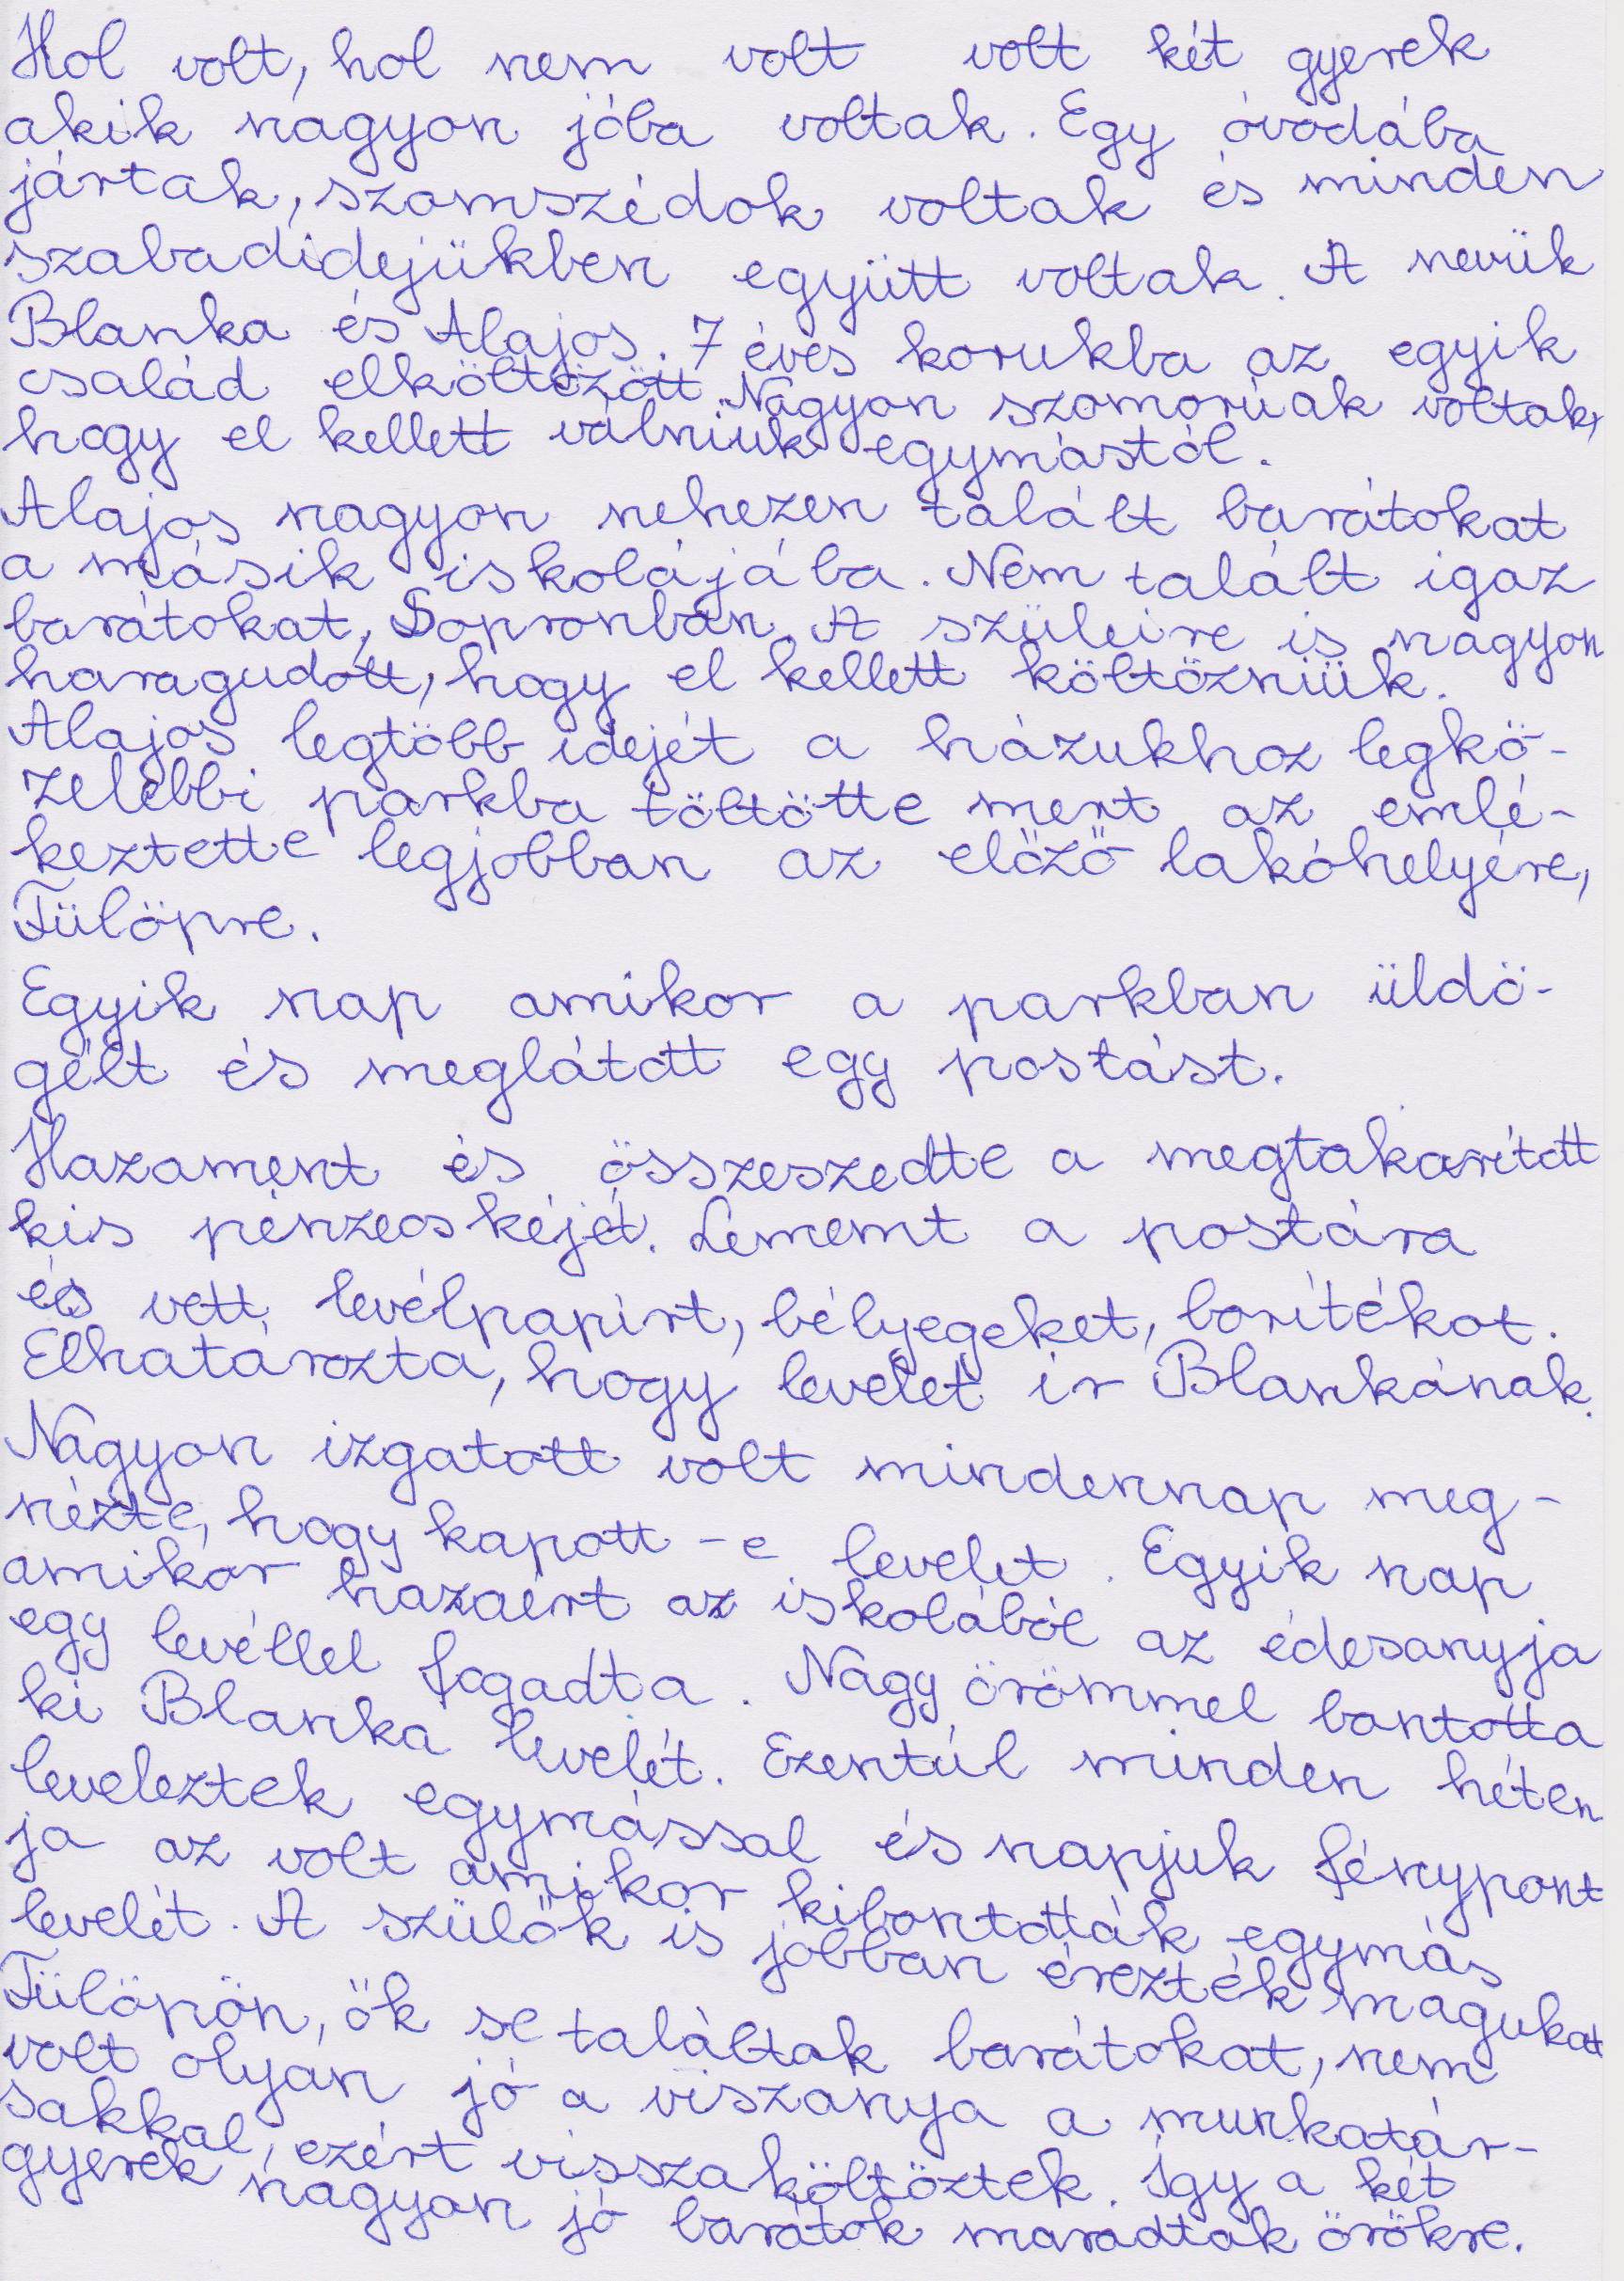 Hol volt, hol nem volt volt két gyerek
akik nagyon jóba voltak. Egy óvodába
jártak, szomszédok voltak és minden
szabadidejükben együtt voltak. A nevük
Blanka és Alajos. 7 éves korukba az egyik
család elköltözött. Nagyon szomorúak voltak,
hogy el kellett válniuk egymástól.
Alajos nagyon nehezen talált barátokat
a másik iskolájába. Nem talált igaz
barátokat, Sopronban. A szüleire is nagyon
haragudott, hogy el kellett költözniük.
Alajos legtöbb idejét a házukhoz legkö-
zelebbi parkba töltötte mert az emlé-
keztette legjobban az előző lakóhelyére,
Fülöpre.
Egyik nap amikor a parkban üldö-
gélt és meglátott egy postást.
Hazament és összeszedte a megtakarított
kis pénzecskéjét. Lememt a postára
és vett levélpapírt, bélyegeket, borítékot.
Elhatározta, hogy levelet ír Blankának.
Nagyon izgatott volt mindennap meg-
nézte, hogy kapott-e levelet. Egyik nap
amikor hazaért az iskolából az édesanyja
egy levéllel fogadta. Nagy örömmel bontotta
ki Blanka levelét. Ezentúl minden héten
leveleztek egymással és napjuk fénypont
ja az volt amikor kibontották egymás
levelét. A szülők is jobban érezték magukat
Fülöpön, ők se találtak barátokat, nem
volt olyan jó a viszanya a munkatár-
sakkal, ezért visszaköltöztek. Így a két
gyerek nagyon jó barátok maradtak örökre.